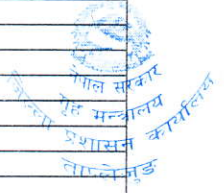 नेपाल सरकार
गृह मन्त्रालय
जिल्ला प्रशासन कार्यालय
ताप्लेजुङ